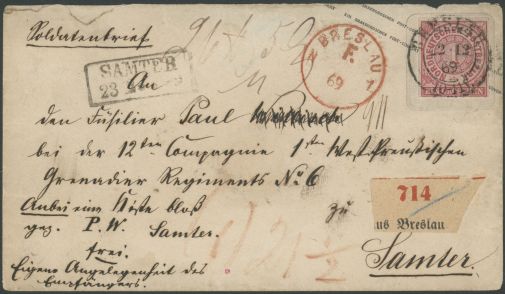 Soldatenbrief
SAMTER
23
BRESLAU
F.
69
12 12
69
NORDDEUTSCHER
An
den Füsilier Paul
bei der 12ten Compagnie 1sten West-Preußischen
Grenadier Regiments No 6
Anbei eine Kiste bloß
gez. P. W. Samter. zu
frei.
Samter.
Eigene Angelegenheit des
Empfängers.
714
us Breslau